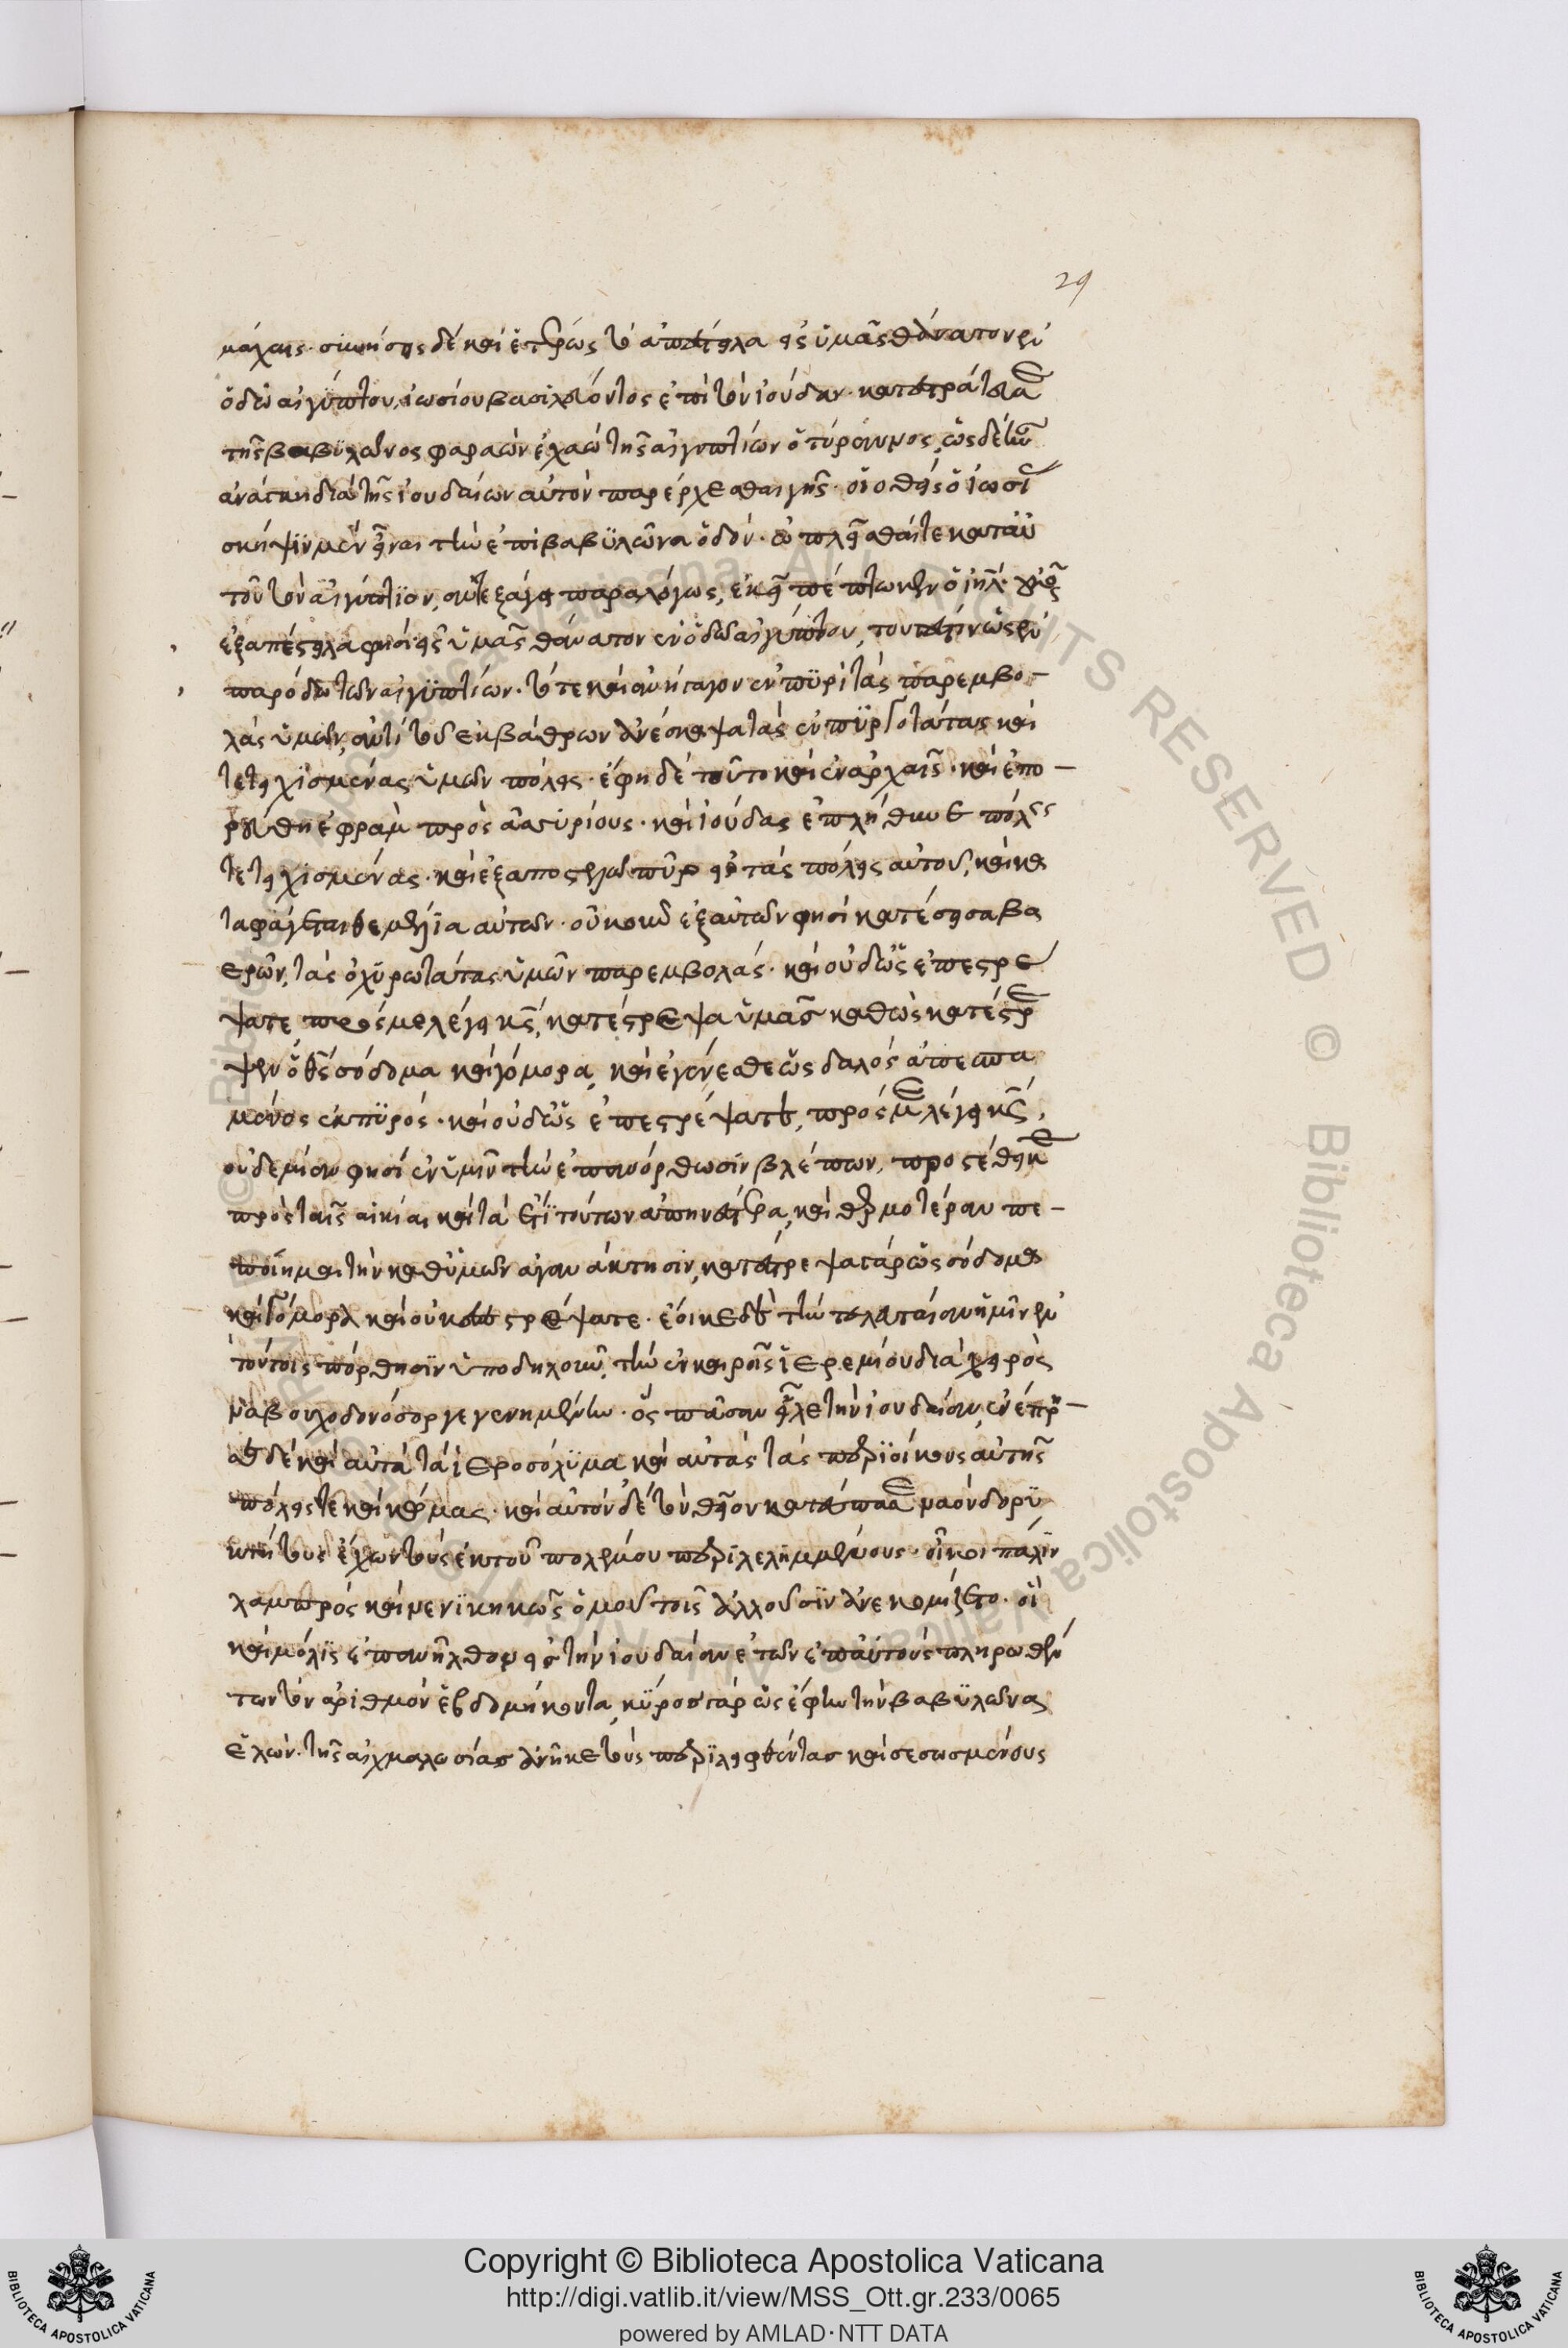 29
μάχαις. σϊωπήσεις δέ καὶ ἑτέρως τὸ ἀπέστειλα εἰς ὑμᾶς θάνατον ἐν
ὁδῶ αἰγύπτου. ἰωσίου βασιλεύοντος ἐπὶ τὸν ἰούδαν. κατεστράτευσε
τῆς βαβϋλῶνος φαραὼν νεχαὼ τῆς αἰγυπτίων ὁ τύραννος, ὡς δὲ ἦν
ἀνάγκη διὰ τῆς ἰουδαίων αὐτὸν παρέρχεσθαι γῆς. οἰηθεὶς ὁ ἰωσί
σκήψϊν μὲν εἶναι τὴν ἐπὶ βαβϋλῶνα ὁδόν. ὁπλεῖσθαί τε κατ' αὐ
τοῦ τὸν αἰγύπτϊον, ἀντεξάγει παραλόγως, ἐκεῖ πέπτωκεν ὁ ἰηλ.
ἐξαπέστειλα φησὶν εἰς ὑμᾶς θάνατον ἐν ὁδῶ αἰγύπτου, τουτέστιν ὡς ἐν
παρόδω τῶν αἰγϋπτίων. τότε καὶ ἀνήγαγον ἐν πϋρὶ τὰς παρεμβο-
λὰς ὑμῶν, ἀντὶ τοῦ ἐκ βάθρων ἀνέσκαψα τὰς εὐπϋργοτάτας καὶ
τετειχϊσμένας ὑμῶν πόλεις. ἔφη δέ τοῦτο καὶ ἐν ἀρχαῖς. καὶ ἐπο-
ρεύθη ἐφραὶμ πρὸς ἀσσυρίους. καὶ ἰούδας ἐπλήθυνε πόλεις
τετειχισμένας. καὶ ἐξαποστελῶ πῦρ εἰς τὰς πόλεις αὐτοῦ, καὶ κα
ταφάγεται θεμέλϊα αὐτῶν. οὐκοῦν ἐξ αὐτῶν φησὶ κατέσεισα βα
θρῶν, τὰς ὀχϋρωτάτας ὑμῶν παρεμβολάς. καὶ οὐδ' ὣς ἐπεστρέ
ψατε πρός με λέγει κς, κατέστρεψα ὑμᾶς καθὼς κατέστρε
ψεν ὁ θς σόδομα καὶ γόμορα, καὶ ἐγένεσθε ὡς δαλὸς ἀπεσπα
μένος ἐκ πϋρός. καὶ οὐδ' ὣς ἐπεστρέψατε, πρός με λέγει κς.
οὐδεμίαν φησὶ ἐν ὑμῖν τὴν ἐπανόρθωσϊν βλέπων, προστέθεικε
πρὸς ταῖς αἰκίαι καὶ τὰ ἔτϊ τούτων ἀπηνέστερα, καὶ θερμοτέραν πε-
ποίημαι τὴν καθ' ὑμῶν ἀγανάκτησιν, κατέστρεψα γὰρ ὡς σόδομα
καὶ γόμορα καὶ οὐκ ἐπεστρέψατε. ἔοικε δὲ τὴν πλαταίαν ἡμῖν ἐν
τούτοις πόρθησϊν ὑποδηλοῦν, τὴν ἐν καιροῖς ἱερεμίου διὰ χειρὸς
ναβουχοδονόσορ γεγενημένην. ὃς πᾶσαν εἷλε τὴν ἰουδαίαν, ἐνέπρη-
σε δὲ καὶ αὐτὰ τὰ ἱεροσόλϋμα καὶ αὐτὰς τὰς περϊοίκους αὐτῆς
πόλεις τε καὶ κώμας. καὶ αὐτὸν δὲ τὸν θεῖον κατέσπασε ναὸν δορϋ
κτήτους ἔχων τοὺς ἐκ τοῦ πολέμου περϊλελημμένους. οἴκοι πάλϊν
λαμπρὸς καὶ νενϊκηκὼς ὁμοῦ τοῖς ἄλλοις ἀνεκομίζετο. οἳ
καὶ μόλϊς ἐπανῆλθον εἰς τὴν ἰουδαίαν ἐτῶν ἐπ' αὐτοὺς πληρωθέν
των τὸν ἀριθμὸν ἑβδομήκοντα, κϋρος γὰρ ὡς ἔφην τὴν βαβϋλῶνα
ἑλών. τῆς αἰχμαλωσίας ἀνῆκε τοὺς περϊλειφθέντας καὶ σεσωσμένους
Copyright © Biblioteca Apostolica Vaticana
http://digi.vatlib.it/view/MSS_Ott.gr.233/0065
powered by AMLAD·NTT DATA